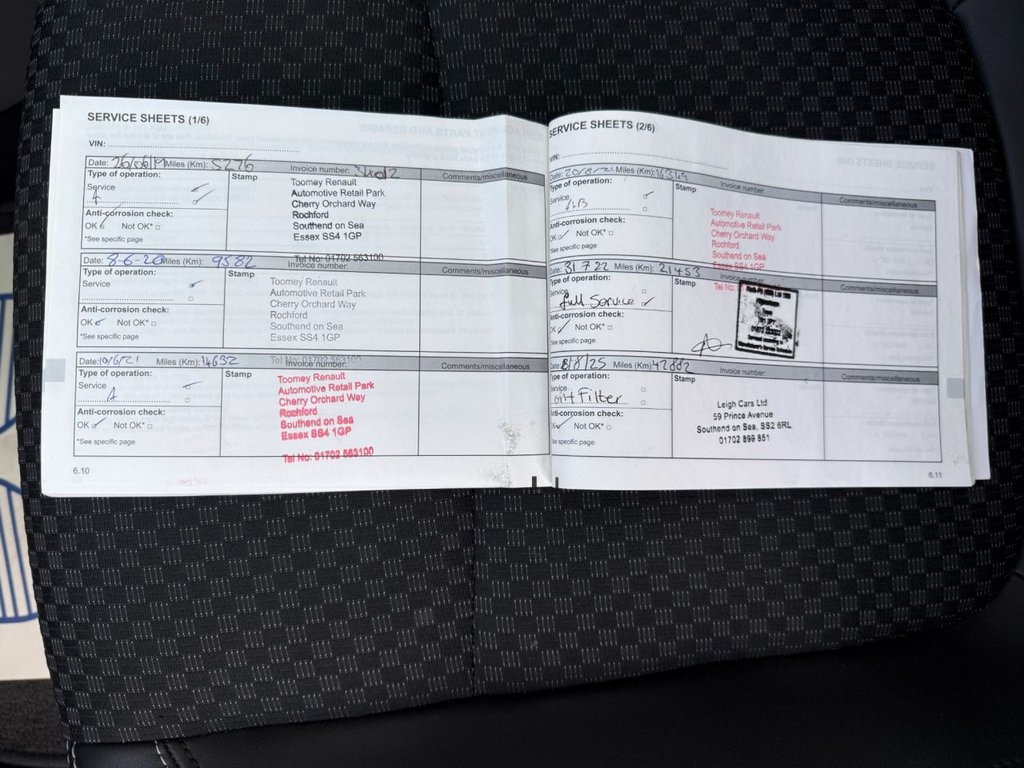 SERVICE SHEETS (1/6)
VIN:
Date: 26/06/19 Miles (Km): 5276 Invoice number:
Type of operation: Stamp Comments/miscellaneous
Service
A
Anti-corrosion check:
OK Not OK*
*See specific page
Toomey Renault
Automotive Retail Park
Cherry Orchard Way
Rochford
Southend on Sea
Essex SS4 1GP
Tel No: 01702 563100
Date: 8-6-20 Miles (Km): 9582 Invoice number:
Type of operation: Stamp Comments/miscellaneous
Service
Anti-corrosion check:
OK Not OK*
*See specific page
Toomey Renault
Automotive Retail Park
Cherry Orchard Way
Rochford
Southend on Sea
Essex SS4 1GP
Tel No: 01702 563100
Date: 10/6/21 Miles (Km): 14632 Invoice number:
Type of operation: Stamp Comments/miscellaneous
Service
A
Anti-corrosion check:
OK Not OK*
*See specific page
Toomey Renault
Automotive Retail Park
Cherry Orchard Way
Rochford
Southend on Sea
Essex SS4 1GP
Tel No: 01702 563100
6.10
SERVICE SHEETS (2/6)
VIN:
Date: 20/8/21 Miles (Km): Invoice number:
Type of operation: Stamp Comments/miscellaneous
Service
AB
Anti-corrosion check:
OK Not OK*
*See specific page
Toomey Renault
Automotive Retail Park
Cherry Orchard Way
Rochford
Southend on Sea
Essex SS4 1GP
Date: 31 7 22 Miles (Km): 21453 Invoice number:
Type of operation: Stamp Comments/miscellaneous
Service
full Service
Anti-corrosion check:
OK Not OK*
*See specific page
Date: 8/8/25 Miles (Km): 42882 Invoice number:
Type of operation: Stamp Comments/miscellaneous
Service
oil + Filter
Anti-corrosion check:
OK Not OK*
*See specific page
Leigh Cars Ltd
59 Prince Avenue
Southend on Sea, SS2 6RL
01702 899 851
6.11